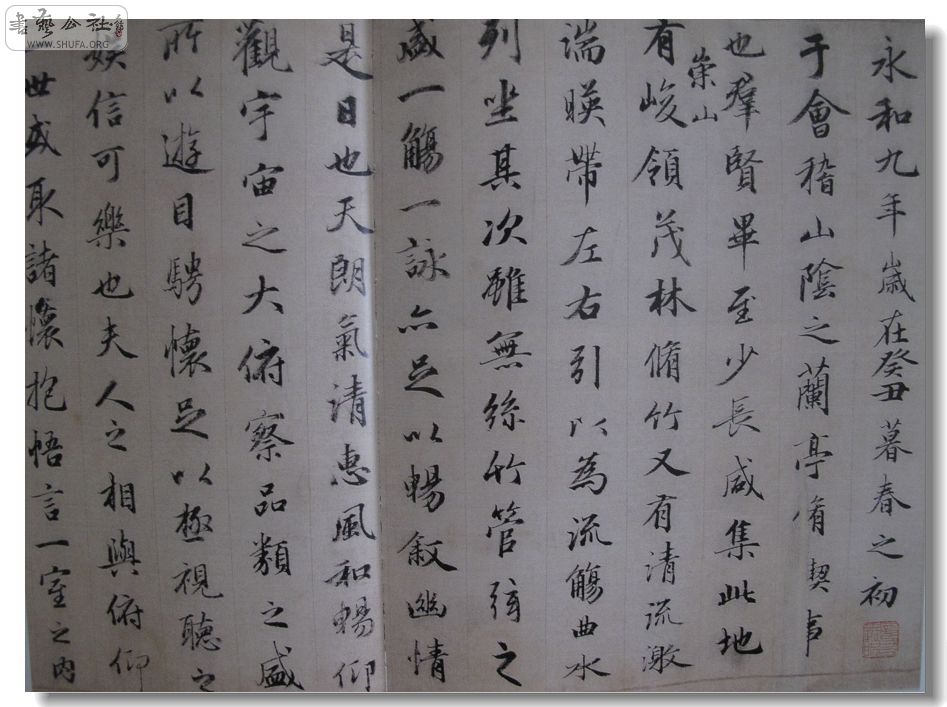 書藝公社
WWW.SHUFA.ORG
永和九年歲在癸丑暮春之初
于會稽山陰之蘭亭脩禊事
也羣賢畢至少長咸集此地
有崇山峻領茂林脩竹又有清流激
湍暎帶左右引以為流觴曲水
列坐其次雖無絲竹管弦之
盛一觴一詠亦足以暢敘幽情
是日也天朗氣清惠風和暢仰
觀宇宙之大俯察品類之盛
所以遊目騁懷足以極視聽之
娛信可樂也夫人之相與俯仰
一世或取諸懷抱悟言一室之內